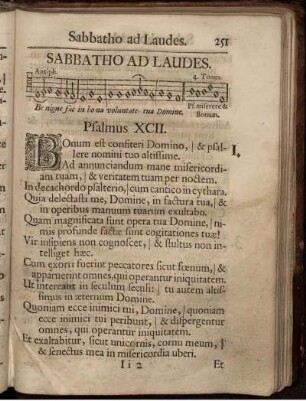 Sabbatho ad Laudes. 251
SABBATHO AD LAUDES.
Antiph. 4. Toni.
Benigne fac in bona voluntate tua Domine. Ps. miserere &
Bonum.
Psalmus XCII.
BOnum est confiteri Domino, | & psal- I.
lere nomini tuo altissime.
Ad annunciandum mane misericordi-
am tuam, | & veritatem tuam per noctem.
In decachordo psalterio, | cum cantico in cythara.
Quia delectasti me, Domine, in factura tua, | &
in operibus manuum tuarum exultabo.
Quam magnificata sunt opera tua Domine, | ni-
mis profundæ factæ sunt cogitationes tuæ!
Vir insipiens non cognoscet, | & stultus non in-
telliget hæc.
Cum exorti fuerint peccatores sicut fœnum, | &
apparuerint omnes, qui operantur iniquitatem.
Ut intereant in seculum seculi: | tu autem altis-
simus in æternum Domine.
Quoniam ecce inimici tui, Domine, | quoniam
ecce inimici tui peribunt, | & dispergentur
omnes, qui operantur iniquitatem.
Et exaltabitur, sicut unicornis, cornu meum, |
& senectus mea in misericordia uberi.
I i 2 Et